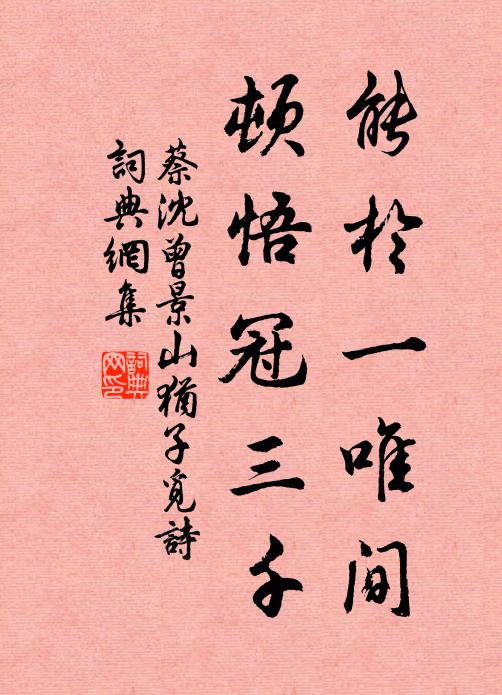 能於一唯間
頓悟冠三千
蔡沈曾景山猶子覓詩
詞典網集
詞典網印